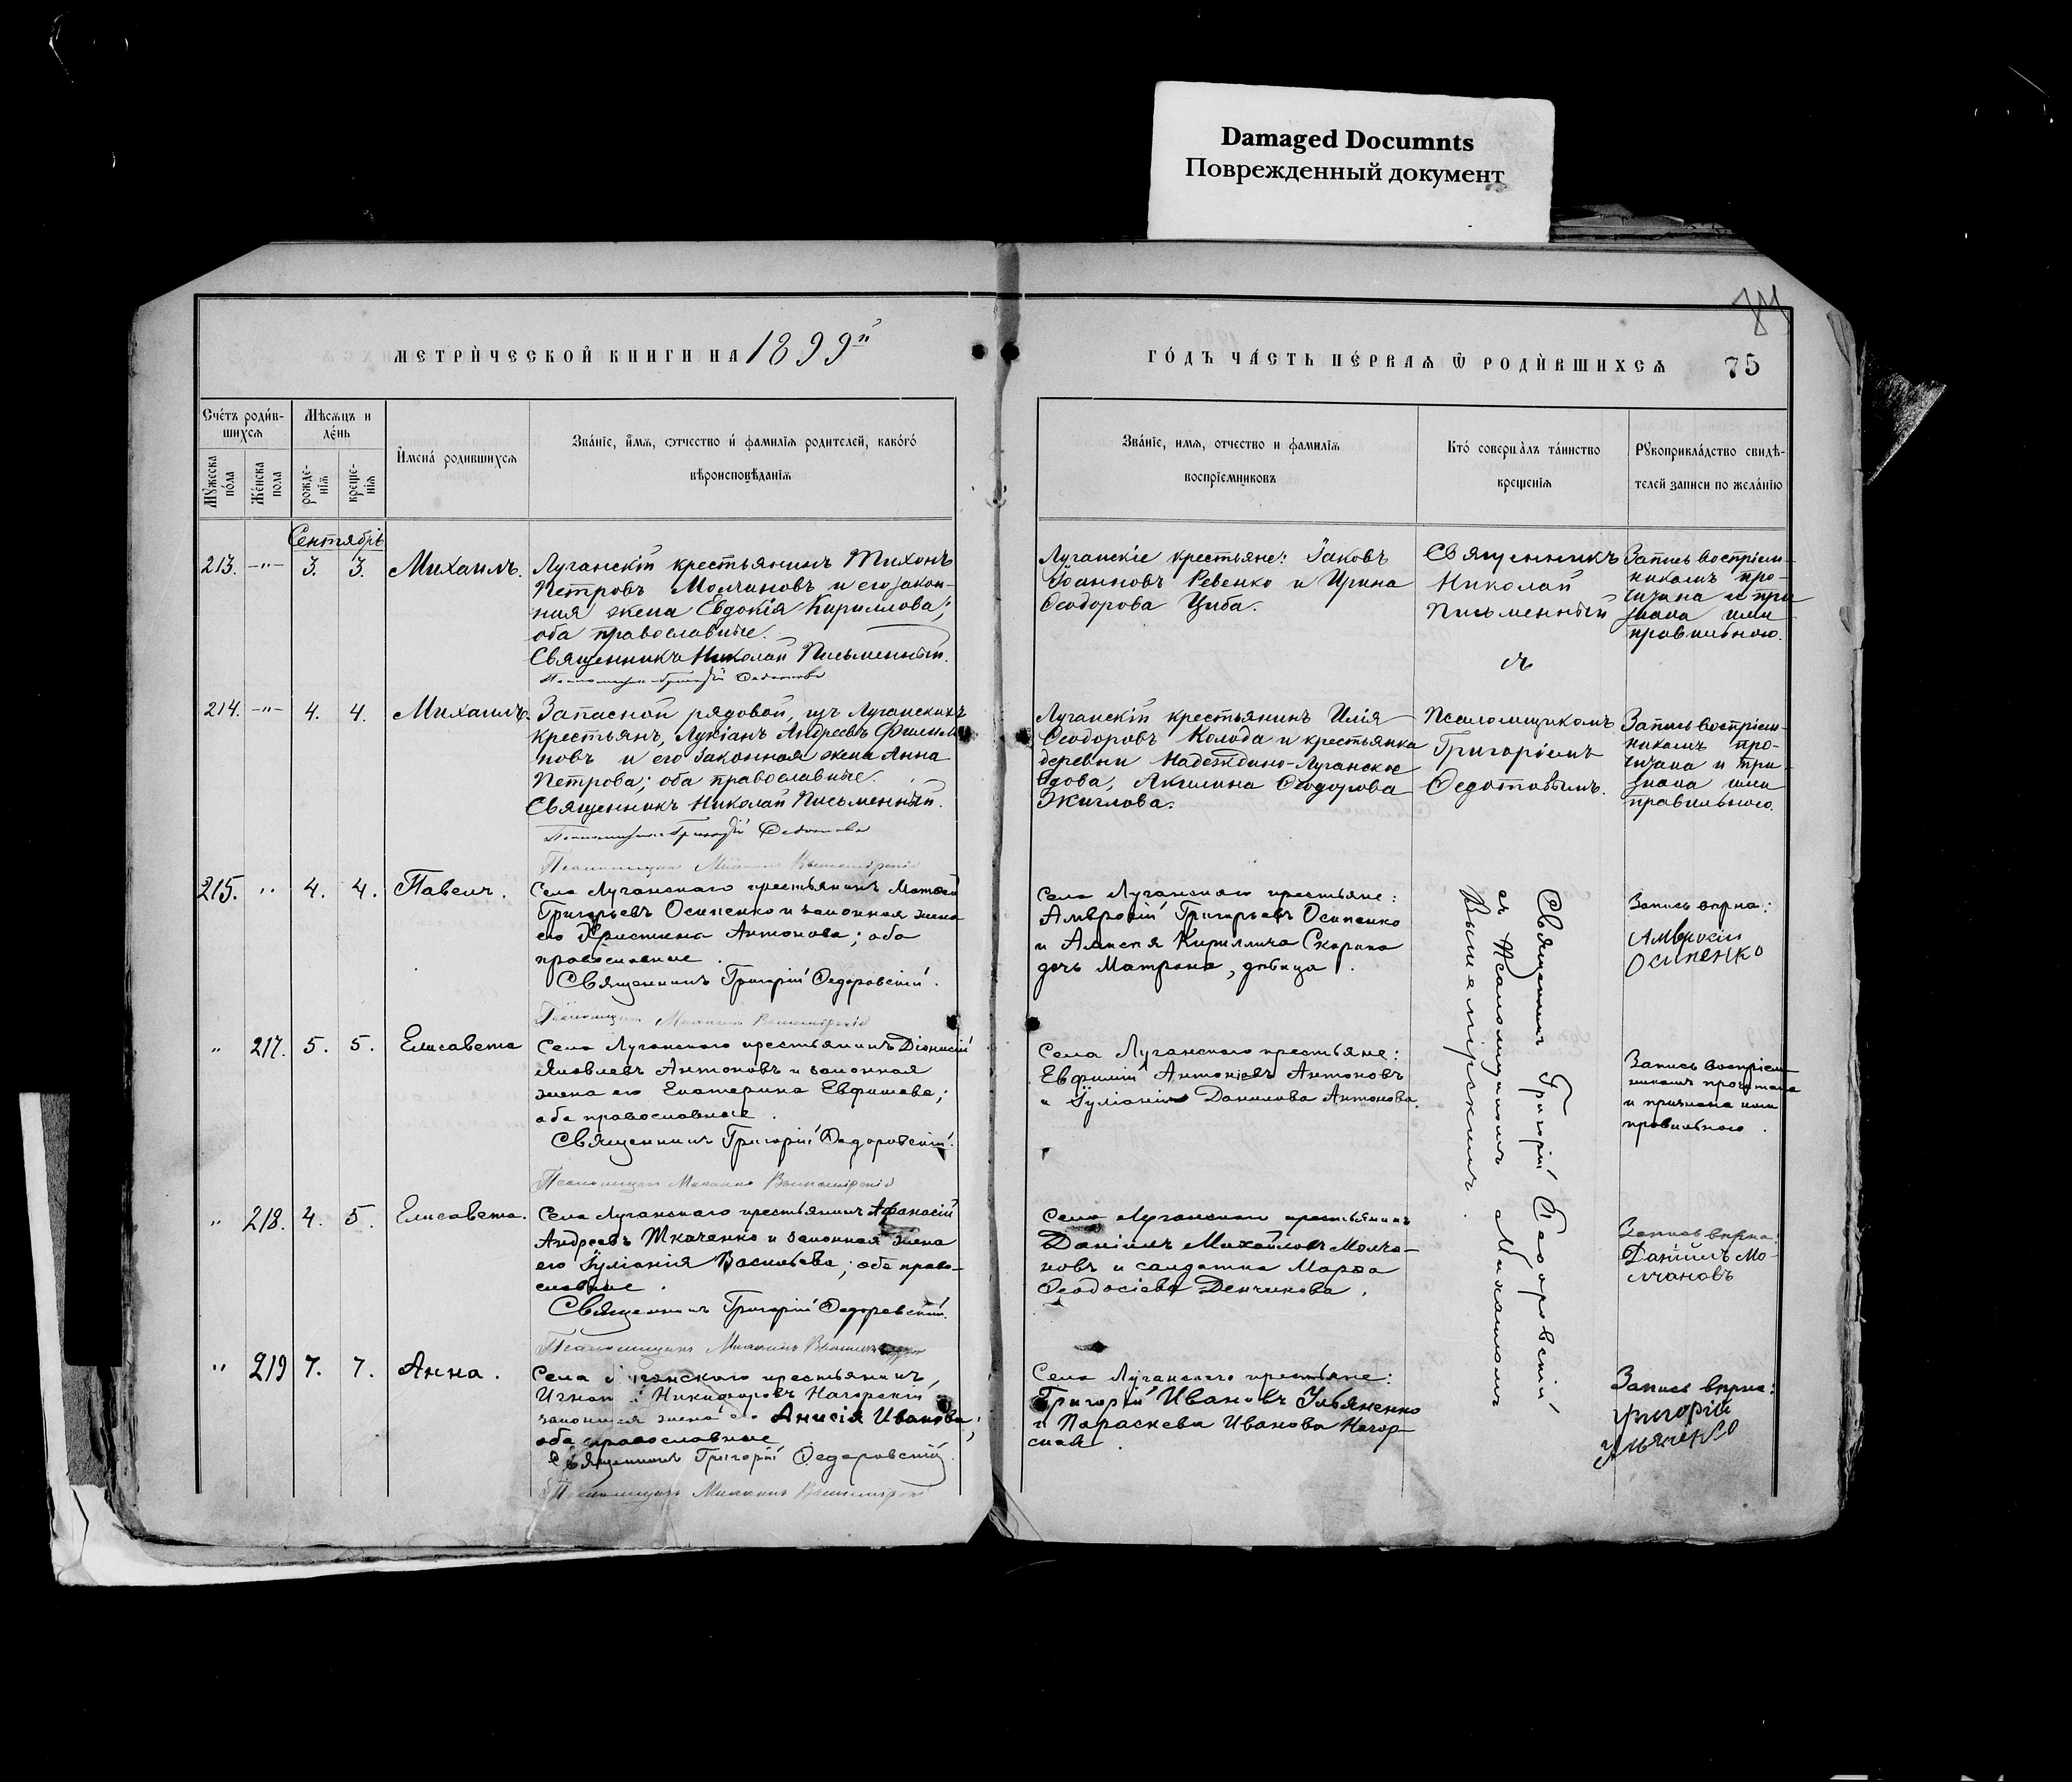 Damaged Documnts
Поврежденный документ
МЕТРИ́ЧЕСКОЙ КНИГИ НА 1899й
ГО́ДЪ ЧА́СТЬ ПЕ́РВАѦ Ѿ РОДИ́ВШИХСѦ 75
Сче́тъ роди́в-
шихсѧ
Мꙋжеска по́ла
Же́нска пола
Мѣсѧцъ и
де́нь
рожде-нїѧ
креще-нїѧ
И҆мена́ родившихсѧ
Зва́нїе, и҆́мѧ, ѻтчество и҆ фамилїѧ родителей, како́гѡ
вѣроисповѣданїѧ
Зва́нїе, имѧ, отчество и фамилїѧ
воспрїемниковъ
Кто̀ соверша́лъ та́инство
крещенїѧ
Рꙋкоприкла́дство свидѣ-
телей записи по жела́нїю
Сентябрь
213. -"- 3. 3. Михаилъ.
Луганскій крестьянинъ Тихонъ
Петровъ Молчановъ и его закон-
ная жена Евдокія Кириллова;
оба православные.
Священникъ Николай Письменный.
Псаломщикъ Григорій Федотовъ
Луганскіе крестьяне: Іаковъ
Іоанновъ Ревенко и Ирина
Ѳеодорова Циба.
Священникъ
Николай
Письменный
съ
Запись воспріем-
никамъ про-
читана и при
знана ими
правильною.
214. -"- 4. 4. Михаилъ.
Запасной рядовой, изъ Луганскихъ
крестьянъ, Лукіанъ Андреевъ Филип
повъ и его законная жена Анна
Петрова; оба православные.
Священникъ Николай Письменный.
Псаломщикъ Григорій Федотовъ
Луганскій крестьянинъ Илія
Ѳеодоровъ Колода и крестьянка
деревни Надеждино-Луганское
вдова, Акилина Ѳеодорова
Жиглова.
Псаломщикомъ
Григоріемъ
Ѳедотовымъ.
Запись воспріем-
никамъ про-
читана и при-
знана ими
правильною.
Псаломщикъ Михаилъ Вышемірскій
215. " 4. 4. Павелъ.
Села Луганскаго крестьянинъ Матѳей
Григорьевъ Осипенко и законная жена
его Христина Антонова; оба
православные.
Священникъ Григорій Ѳедоровскій.
Псаломщикъ Михаилъ Вышемірскій
Села Луганскаго крестьяне:
Амвросій Григорьевъ Осипенко
и Алексея Кириллича Скорика
дочь Матрона, дѣвица.
Священникъ Григорій Ѳеодоровскій
съ Псаломщикомъ Михаиломъ
Вышемірскимъ.
Запись вѣрна:
Амвросий
Осипенко
" 217. 5. 5. Елисавета
Села Луганскаго крестьянинъ Діонисій
Яковлевъ Антоновъ и законная
жена его Екатерина Евфимева;
оба православные.
Священникъ Григорій Ѳедоровскій.
Псаломщикъ Михаилъ Вышемірскій
Села Луганскаго крестьяне:
Евфимій Антоніевъ Антоновъ
и Іуліанія Данилова Антонова.
Запись воспріем-
никамъ прочитана
и признана ими
правильною.
" 218. 4. 5. Елисавета.
Села Луганскаго крестьянинъ Афанасій
Андреевъ Ткаченко и законная жена
его Іуліанія Васильева; оба право-
славные.
Священникъ Григорій Ѳедоровскій.
Псаломщикъ Михаилъ
Села Луганскаго крестьянинъ
Даніилъ Михайловъ Молча-
новъ и солдатка Марѳа
Ѳеодосіева Денчикова.
Запись вѣрна:
Даніилъ Мо-
лчановъ
" 219 7. 7. Анна.
Села Луганскаго крестьянинъ,
Никифоровъ Нагорскій
законная жена его Анисія Иванова;
оба православные
Священникъ Григорій Ѳедоровскій.
Псаломщикъ Михаилъ
Села Луганскаго крестьяне:
Григорій Ивановъ Ульяненко
и Параскева Иванова Нагор-
ская.
Запись вѣрна:
Григорій
Ульяненко